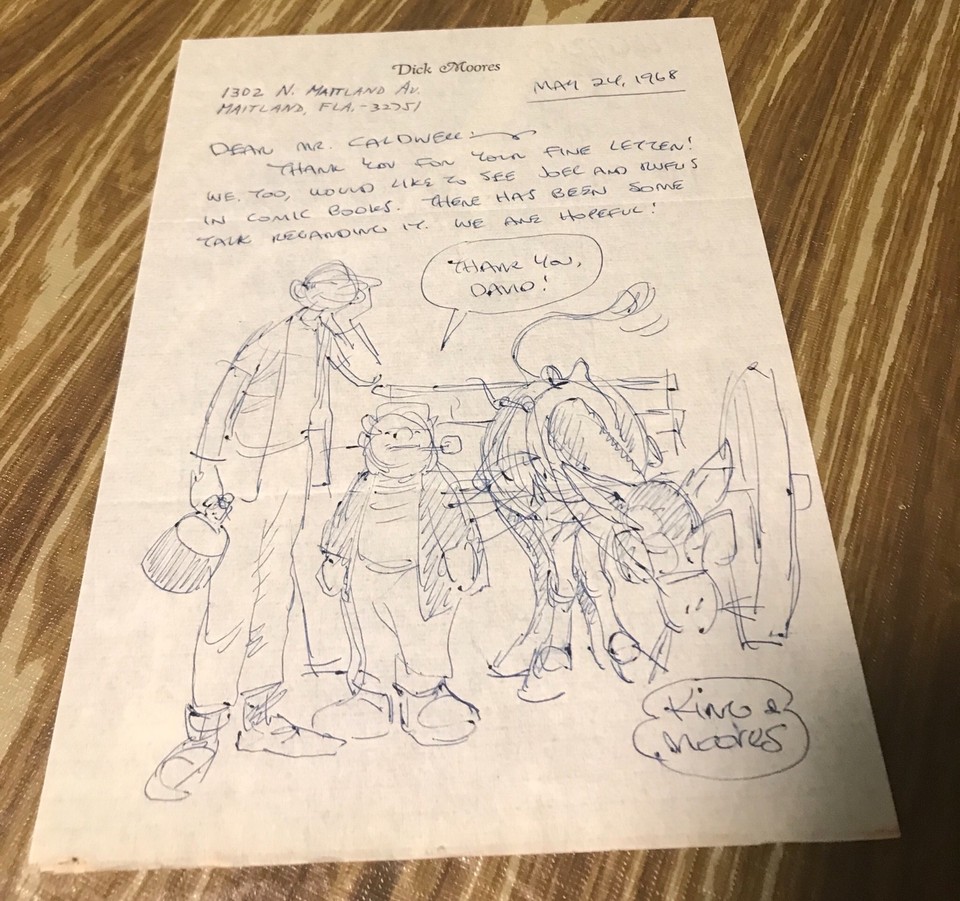 Dick Moores
1302 N. MAITLAND AV.
MAITLAND, FLA. - 32751
MAY 24, 1968
DEAR MR. CALDWELL:
THANK YOU FOR YOUR FINE LETTER!
WE, TOO, WOULD LIKE TO SEE JOEL AND RUFUS
IN COMIC BOOKS. THERE HAS BEEN SOME
TALK REGARDING IT. WE ARE HOPEFUL!
THANK YOU,
DAVID!
KING &
MOORES